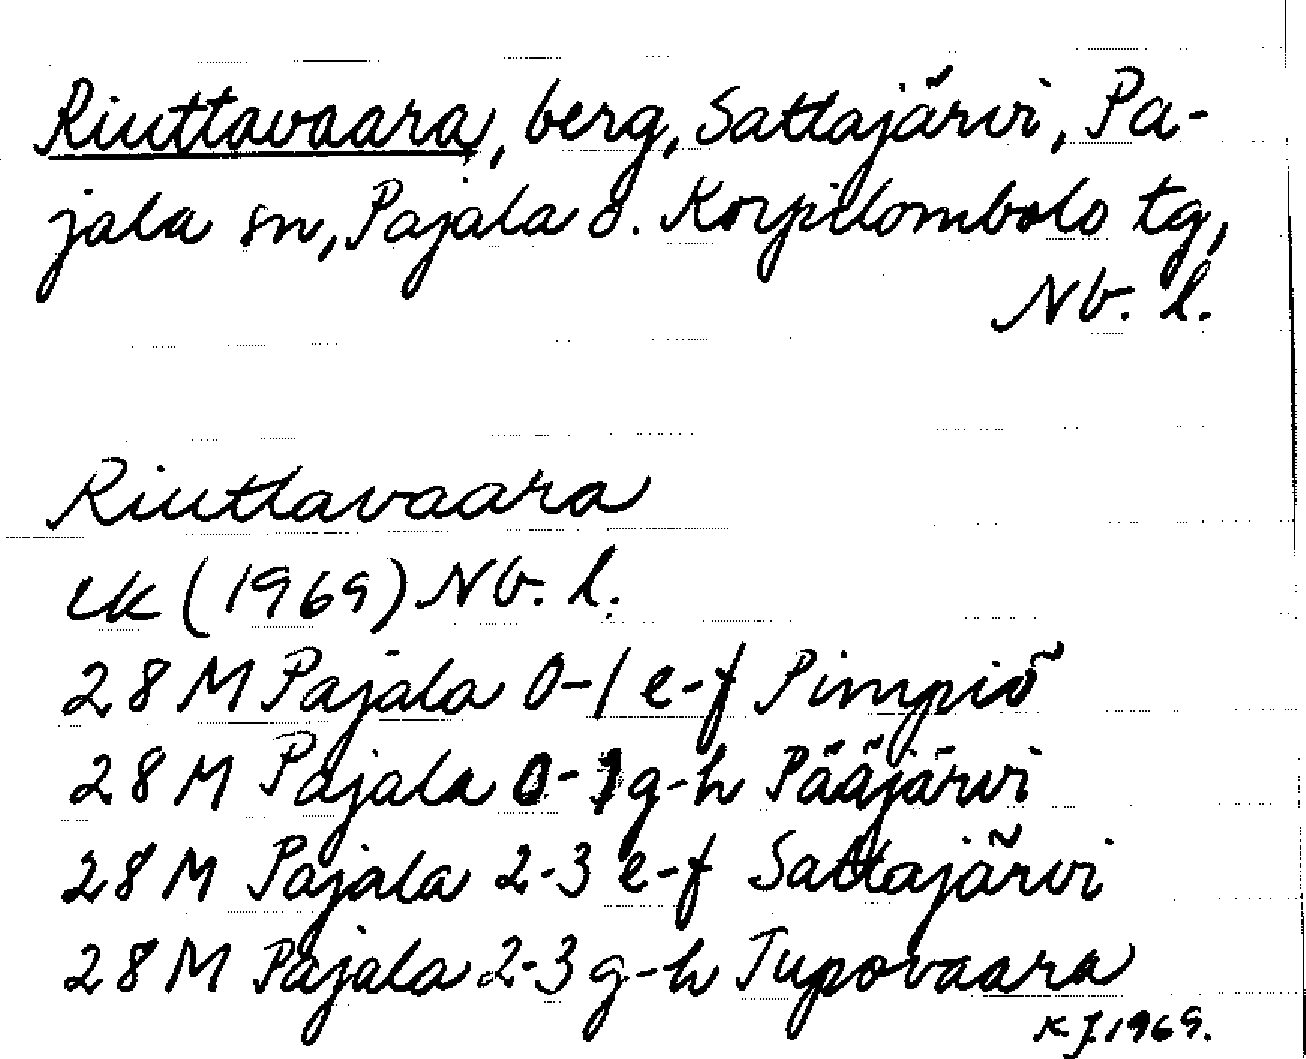 Riuttavaara, berg, Sattajärvi, Pa-
jala sn, Pajala o. Korpilombolo tg,
Nb. l.
Riuttavaara
ek (1969) Nb. l.
28 M Pajala 0-1 e-f Pimpiö
28 M Pajala 0-1 g-h Pääjärvi
28 M Pajala 2-3 e-f Sattajärvi
28 M Pajala 2-3 g-h Tupovaara
KJ. 1969.